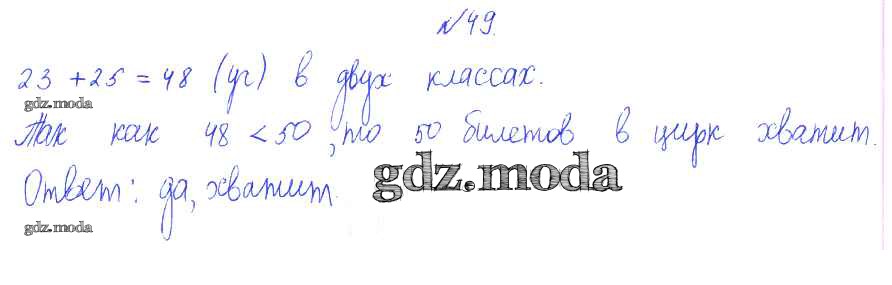 №49.
23 + 25 = 48 (уч) в двух классах.
gdz.moda
Так как 48 < 50, то 50 билетов в цирк хватит.
gdz.moda
Ответ: да, хватит.
gdz.moda